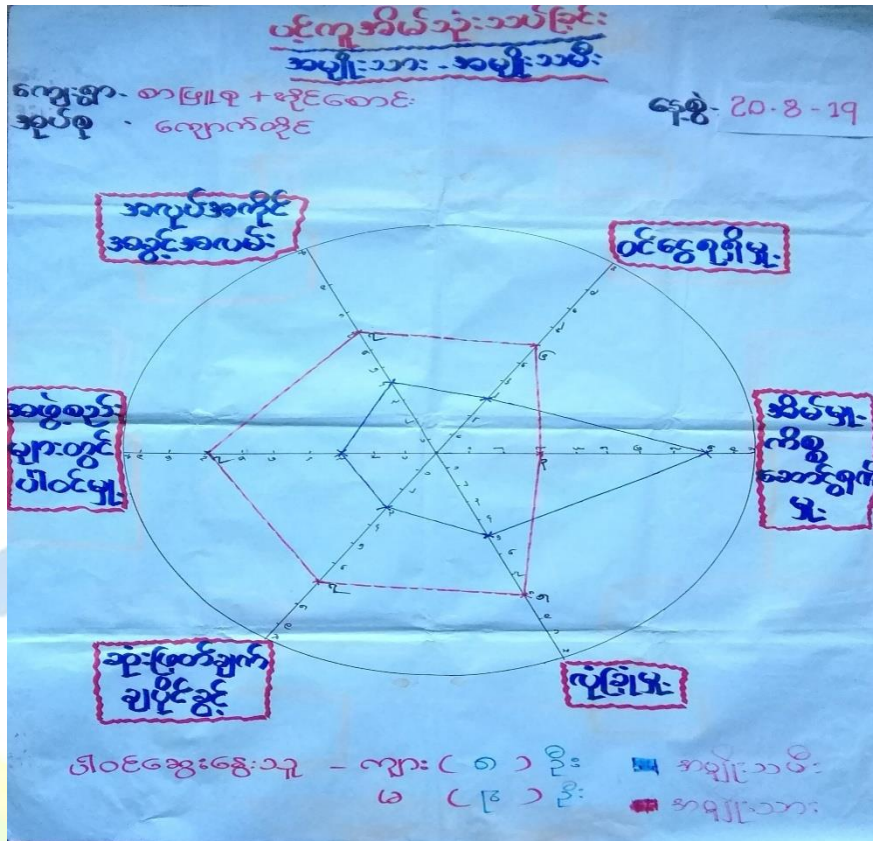 ပင့်ကူအိမ်သုံးသပ်ခြင်း
အမျိုးသား - အမျိုးသမီး
ကျေးရွာ - စာဖြူစု + ဆိုင်စောင်း
အုပ်စု - ကျောက်တိုင်
နေ့စွဲ - 20.8-19
အလုပ်အကိုင်
အခွင့်အလမ်း
ဝင်ငွေရရှိမှု
အဖွဲ့စည်း
များတွင်
ပါဝင်မှု
အိမ်မှု
ကိစ္စ
ဆောင်ရွက်
မှု
ဆုံးဖြတ်ချက်
ချပိုင်ခွင့်
လုံခြုံမှု
ပါဝင်ဆွေးနွေးသူ - ကျား ( ၈ ) ဦး
မ ( ၄ ) ဦး
အမျိုးသမီး
အမျိုးသား